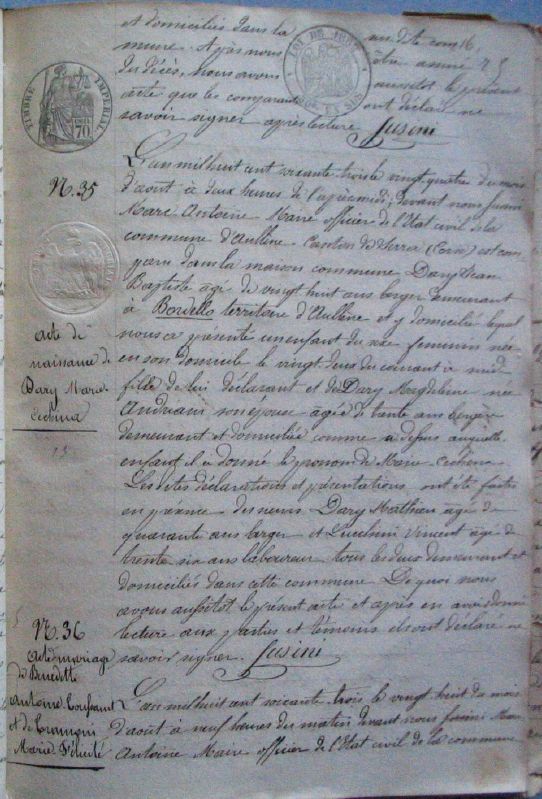 et domiciliés dans la
mune. Après nous
du décès, nous avons aussitôt le présent
acte que les comparants ont déclaré ne
savoir signer après lecture Susini
LOI DE
TIMBRE IMPERIAL
70
N. 35
acte de
naissance de
Dary Marie
L'an mil huit cent soixante trois le vingt quatre du mois
d'août à deux heures de l'après midi, devant nous Susini
Marc Antoine Maire officier de l'Etat civil de la
commune d'Aullène Canton de Serra (Corse) est com
paru dans la maison commune Dary Jean
Baptiste âgé de vingt huit ans berger demeurant
à Bordello territoire d'Aullène et y domicilié lequel
nous a présenté un enfant du sexe feminin née
en son domicile le vingt deux du courant à midi
fille de lui déclarant et de Dary Magdeleine née
Andreani son épouse âgée de trente ans bergère
demeurant et domiciliée comme ci dessus auquelle
enfant il a donné le prenom de Marie
Les dites déclarations et présentations ont été faites
en présence des sieurs Dary Mathieu âgé de
quarante ans berger et Lucchini Vincent âgé de
trente six ans laboureur tous les deux demeurant et
domiciliés dans cette commune De quoi nous
avons aussitôt le présent acte et après en avoir donné
lecture aux parties et témoins ils ont déclaré ne
savoir signer. Susini
N. 36
acte de mariage
de Benedetti
Antoine Toussaint
et de
Marie Félicité
L'an mil huit cent soixante trois le vingt huit du mois
d'août à neuf heures du matin devant nous Susini Marc
Antoine Maire officier de l'Etat civil de la commune